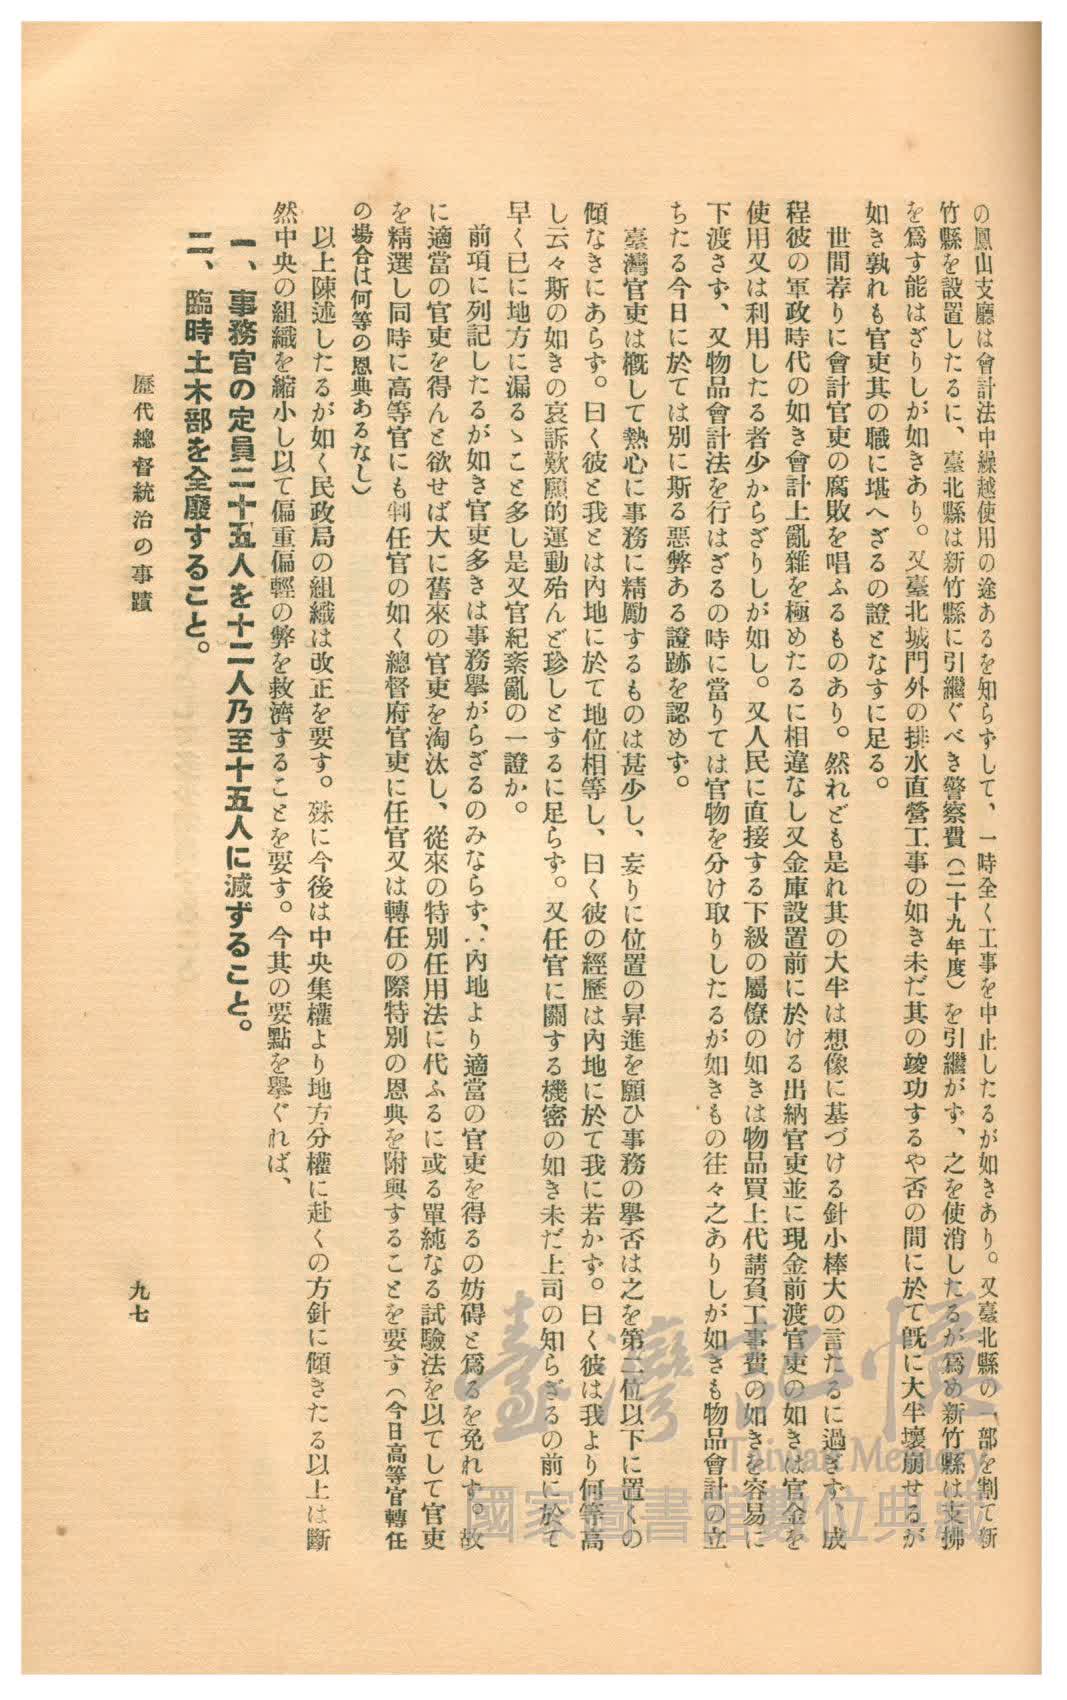 の鳳山支廳は會計法中繰越使用の途あるを知らずして、一時全く工事を中止したるが如きあり。又臺北縣の一部を割て新
竹縣を設置したるに、臺北縣は新竹縣に引繼ぐべき警察費(二十九年度)を引繼がず、之を使消したるが爲め新竹縣は支拂
を爲す能はざりしが如きあり。又臺北城門外の排水直營工事の如き未だ其の竣功するや否の間に於て既に大半壞崩せるが
如き孰れも官吏其の職に堪へざるの證となすに足る。
世間荐りに會計官吏の腐敗を唱ふるものあり。然れども是れ其の大半は想像に基づける針小棒大の言たるに過ぎず、成
程彼の軍政時代の如き會計上亂雜を極めたるに相違なし又金庫設置前に於ける出納官吏並に現金前渡官吏の如きは官金を
使用又は利用したる者少からざりしが如し。又人民に直接する下級の屬僚の如きは物品買上代請負工事費の如きを容易に
下渡さず、又物品會計法を行はざるの時に當りては官物を分け取りしたるが如きもの往々之ありしが如きも物品會計の立
ちたる今日に於ては別に斯る惡弊ある證跡を認めず。
臺灣官吏は概して熱心に事務に精勵するものは甚少し、妄りに位置の昇進を願ひ事務の擧否は之を第二位以下に置くの
傾なきにあらず。曰く彼と我とは內地に於て地位相等し、曰く彼の經歷は內地に於て我に若かず。曰く彼は我より何等高
し云々斯の如きの哀訴歎願的運動殆んど珍しとするに足らず。又任官に關する機密の如き未だ上司の知らざるの前に於て
早く已に地方に漏るゝこと多し是又官紀紊亂の一證か。
前項に列記したるが如き官吏多きは事務擧がらざるのみならず、內地より適當の官吏を得るの妨碍と爲るを免れず。故
に適當の官吏を得んと欲せば大に舊來の官吏を淘汰し、從來の特別任用法に代ふるに或る單純なる試驗法を以てして官吏
を精選し同時に高等官にも判任官の如く總督府官吏に任官又は轉任の際特別の恩典を附與することを要す(今日高等官轉任
の場合は何等の恩典あるなし)
以上陳述したるが如く民政局の組織は改正を要す。殊に今後は中央集權より地方分權に赴くの方針に傾きたる以上は斷
然中央の組織を縮小し以て偏重偏輕の弊を救濟することを要す。今其の要點を擧ぐれば、
一、事務官の定員二十五人を十二人乃至十五人に減ずること。
二、臨時土木部を全廢すること。
歷代總督統治の事蹟
九七
臺灣記憶
Taiwan Memory
國家圖書館數位典藏